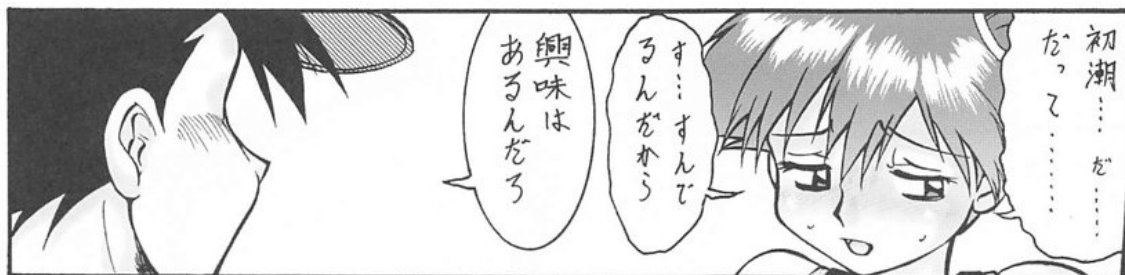 初潮……だ……
だって………
す…すんで
るんだから
興味は
あるんだろ